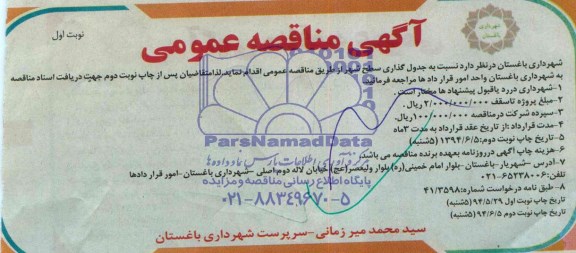 شهرداری باغستان
نوبت اول
آگهی مناقصه عمومی
شهرداری باغستان درنظر دارد نسبت به جدول گذاری سطح شهر ازطریق مناقصه عمومی اقدام نماید.لذا متقاضیان پس از چاپ نوبت دوم جهت دریافت اسناد مناقصه
به شهرداری باغستان واحد امور قرار داد ها مراجعه فرمائید
۱-شهرداری دررد یاقبول پیشنهاد ها مختار است .
۲-مبلغ پروژه تاسقف ۲/۰۰۰/۰۰۰/۰۰۰ ریال.
۳-سپرده شرکت درمناقصه ۱۰۰/۰۰۰/۰۰۰ریال.
۴-مدت قرارداد:از تاریخ عقد قرارداد به مدت ۳ماه
۵-تاریخ چاپ نوبت دوم:۱۳۹۴/۶/۵ (۵شنبه)
۶-هزینه چاپ آگهی درروزنامه بعهده برنده مناقصه می باشد.
۷-آدرس -شهریار-باغستان -بلوار امام خمینی(ره) بلوار ولیعصر(عج) خیابان لاله دوم-اصلی -شهرداری باغستان -امور قرار دادها
تلفن:۶۵۲۳۸۰۰۶-۰۲۱
۸-طبق نامه درخواست شماره:۴۱/۳۵۹۸
تاریخ چاپ نوبت اول ۹۴/۵/۲۹ (۵شنبه)
تاریخ چاپ نوبت دوم ۹۴/۶/۵ (۵شنبه)
سید محمد میر زمانی-سرپرست شهرداری باغستان
ParsNamadData
مرکز فرآوری اطلاعات پارس نماد داده ها
پایگاه اطلاع رسانی مناقصه و مزایده
۰۲۱-۸۸۳۴۹۶۷۰-۵